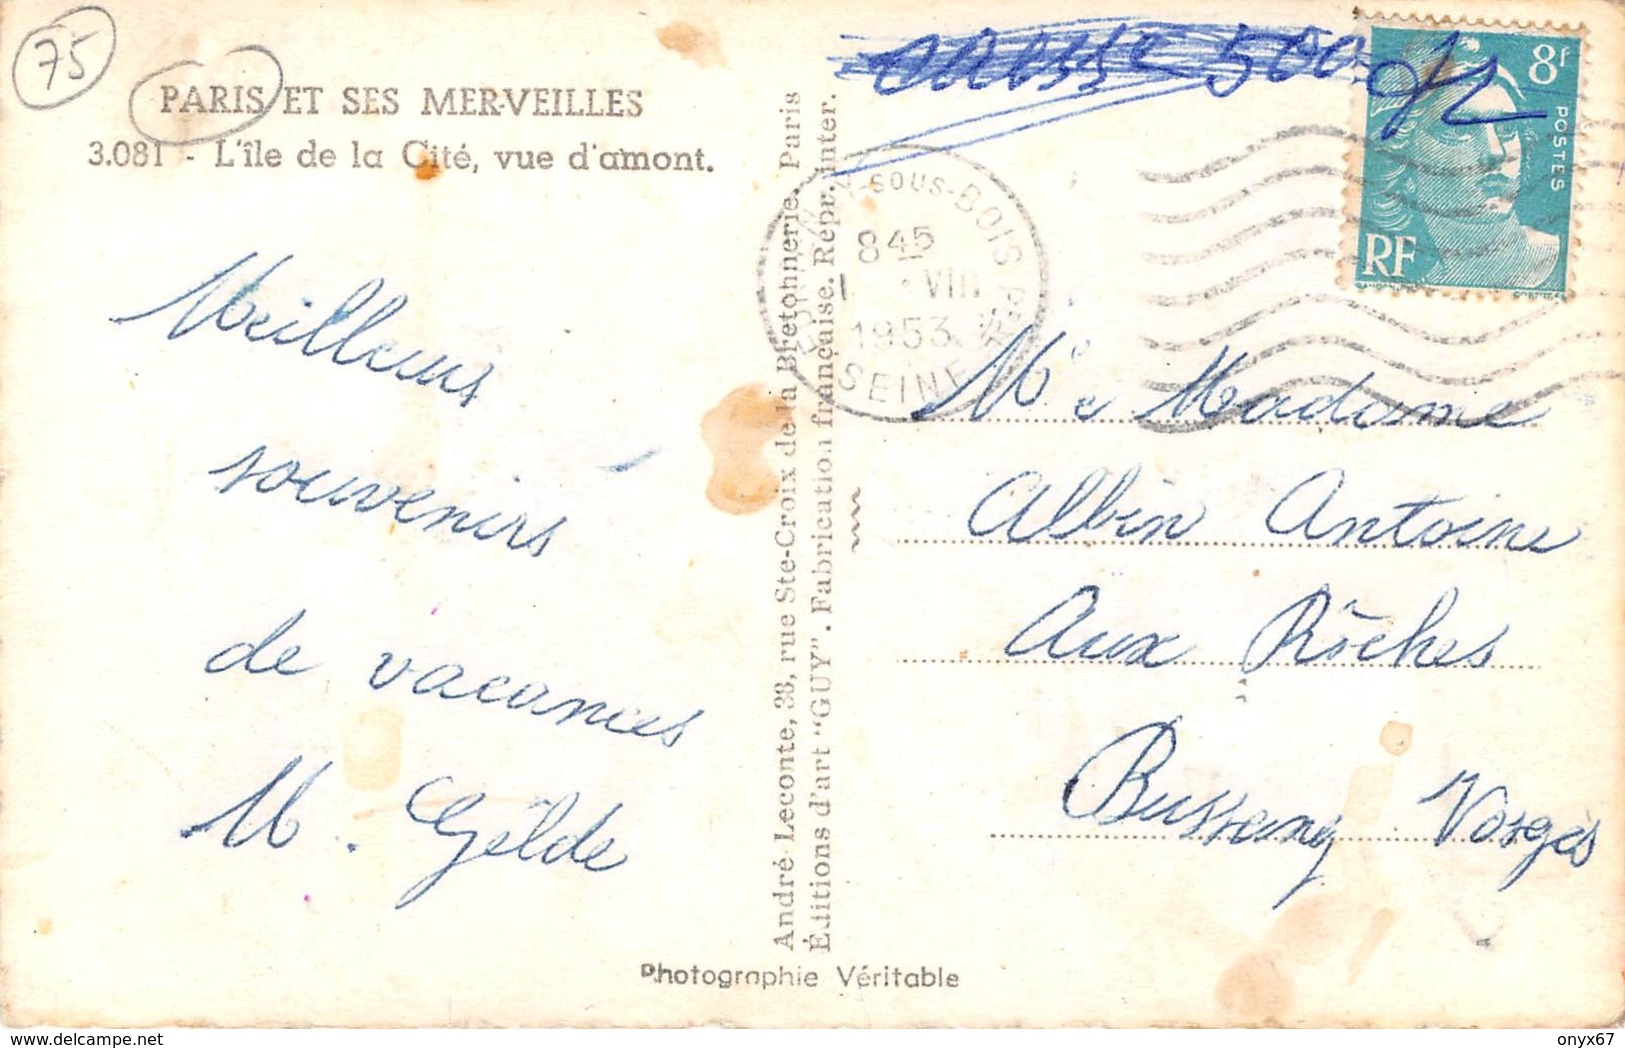 75
PARIS ET SES MERVEILLES
3.081 - L'île de la Cité, vue d'amont.
Meilleurs
souvenirs
de vacances
M. Gélde
André Leconte, 38, rue Ste-Croix de la Bretonnerie. Paris
Éditions d'art "GUY". Fabrication française. Repr. inter.
Photographie Véritable
500
8f
POSTES
RF
-SOUS-BOIS
8 45
VIII
1953
SEINE
Mr e Madame
Albin Antoine
Aux Roches
Bussang Vosges
delcampe.net
onyx67